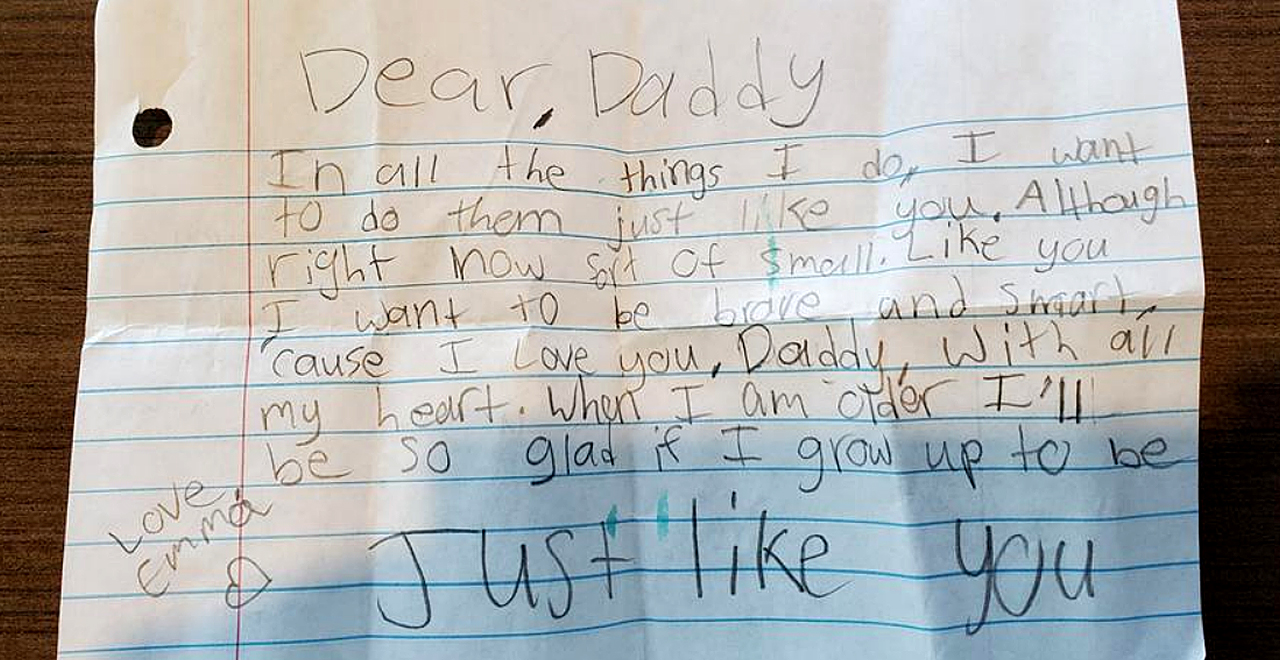 Dear, Daddy
In all the things I do, I want
to do them just like you. Although
right now sort of small. Like you
I want to be brave and smart,
'cause I Love you, Daddy, with all
my heart. When I am older I'll
be so glad if I grow up to be
Just like you
Love,
Emma